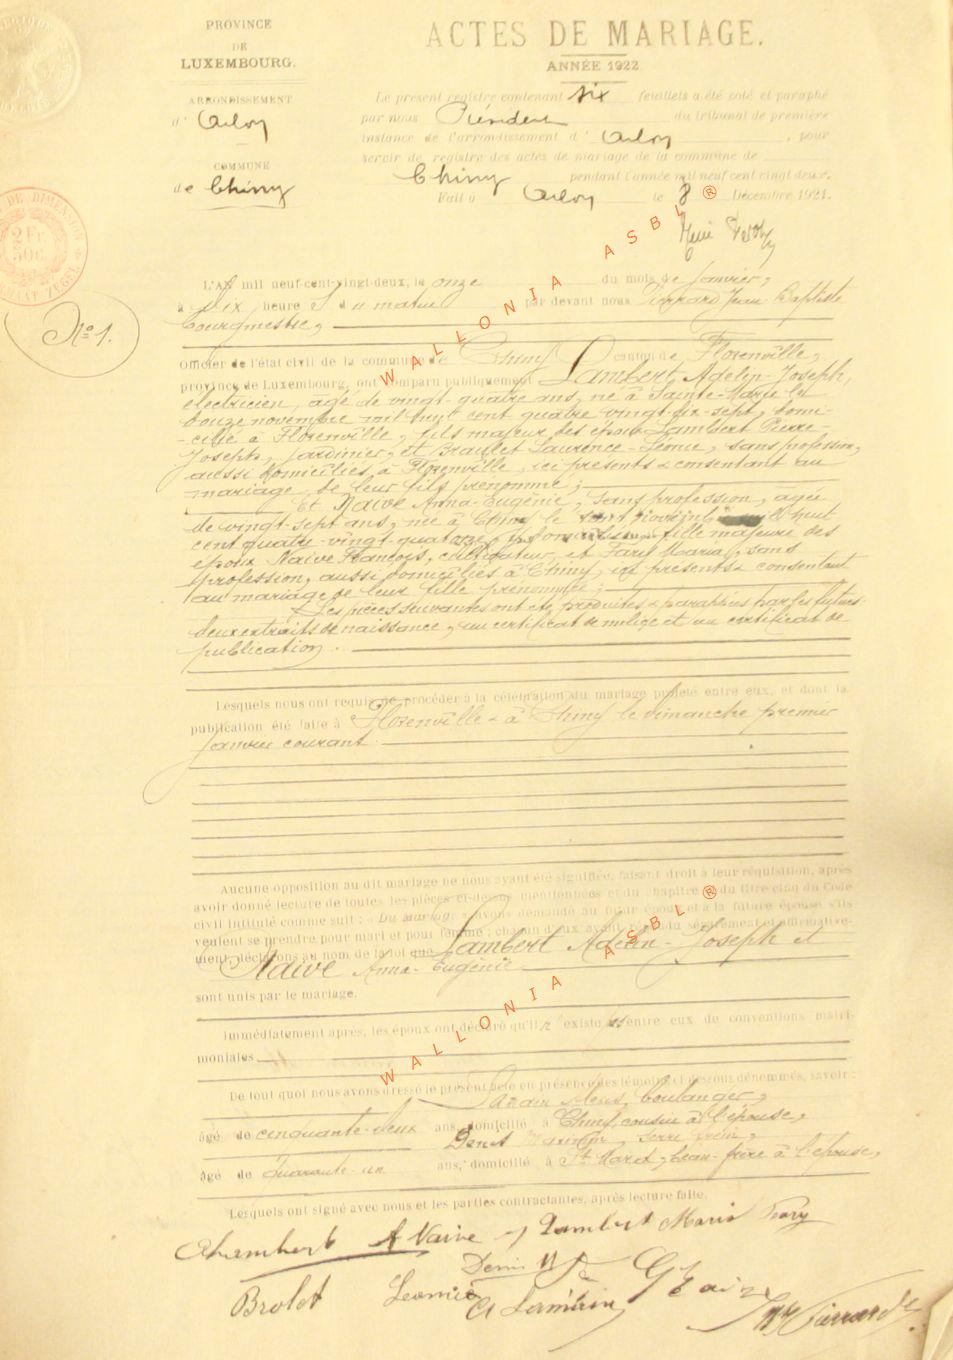 PROVINCE
DE
LUXEMBOURG.
ARRONDISSEMENT
d' Arlon
COMMUNE
de Chiny
2 Fr.
50c.
N° 1.
ACTES DE MARIAGE.
ANNÉE 1922
Le présent registre contenant six feuillets a été coté et paraphé
par nous Président du tribunal de première
instance de l'arrondissement d' Arlon, pour
servir de registre des actes de mariage de la commune de
Chiny pendant l'année mil neuf cent vingt deux.
Fait à Arlon le 8 Décembre 1921.
L'AN mil neuf-cent-vingt-deux, le onze du mois de Janvier,
à dix heures du matin par devant nous Pierrard Jean Baptiste
bourgmestre,
Officier de l'état civil de la commune de Chiny canton de Florenville,
province de Luxembourg, ont comparu publiquement Lambert Adelin-Joseph,
électricien, âgé de vingt-quatre ans, né à Sainte-Marie le
douze novembre mil huit cent quatre vingt-dix-sept, domi-
-cilié à Florenville, fils majeur des époux Lambert Pierre-
Joseph, jardinier, et Braulet Laurence-Léonie, sans profession,
aussi domiciliés à Florenville, ici présents & consentant au
mariage de leur fils prénommé;
Et Naive Anna-Eugénie, sans profession, âgée
de vingt-sept ans, née à Chiny le novembre mil huit
cent quatre-vingt-quatorze, y domiciliée, fille majeure des
époux Naive François, cultivateur, et Fary Maria, sans
profession, aussi domiciliés à Chiny, ici présents & consentant
au mariage de leur fille prénommée;
Les pièces suivantes ont été produites & paraphées par les futurs:
deux extraits de naissance, un certificat de milice et un certificat de
publication.
Lesquels nous ont requis de procéder à la célébration du mariage projeté entre eux, et dont la
publication été faite à Florenville & à Chiny le dimanche premier
Janvier courant.
Aucune opposition au dit mariage ne nous ayant été signifiée, faisant droit à leur réquisition, après
avoir donné lecture de toutes les pièces ci-dessus mentionnées et du chapitre du titre cinq du Code
civil intitulé comme suit : « Du mariage » avons demandé au futur époux et à la future épouse s'ils
veulent se prendre pour mari et pour femme ; chacun d'eux ayant répondu séparément et affirmative-
ment, déclarons au nom de la loi que Lambert Adelin-Joseph et
Naive Anna-Eugénie
sont unis par le mariage.
Immédiatement après, les époux ont déclaré qu'il n'existe pas entre eux de conventions matri-
moniales
De tout quoi nous avons dressé le présent acte en présence des témoins ci-dessous dénommés, savoir :
boulanger,
âgé de cinquante-deux ans, domicilié à Chiny, cousin à l'épouse,
Denis
âgé de quarante-un ans, domicilié à St Mard, beau-frère à l'épouse,
Lesquels ont signé avec nous et les parties contractantes, après lecture faite.
A Lambert A Naive Lambert Maria Fary
Denis
Brolet Léonie
Pierrard
WALLONIA ASBL ®
WALLONIA ASBL ®